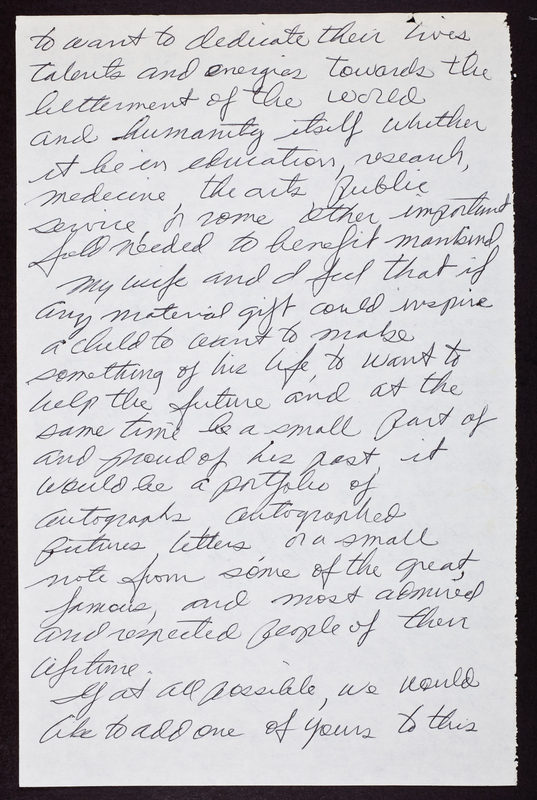 to want to dedicate their lives,
talents and energies towards the
betterment of the world
and humanity itself whether
it be in education, research,
medecine, the arts, public
service, or some other important
field needed to benefit mankind.
My wife and I feel that if
any material gift could inspire
a child to want to make
something of his life, to want to
help the future and at the
same time be a small part of
and proud of his past, it
would be a portfolio of
autographs autographed
pictures, letters or a small
note from some of the great,
famous, and most admired
and respected people of their
lifetime.
If at all possible, we would
like to add one of yours to this